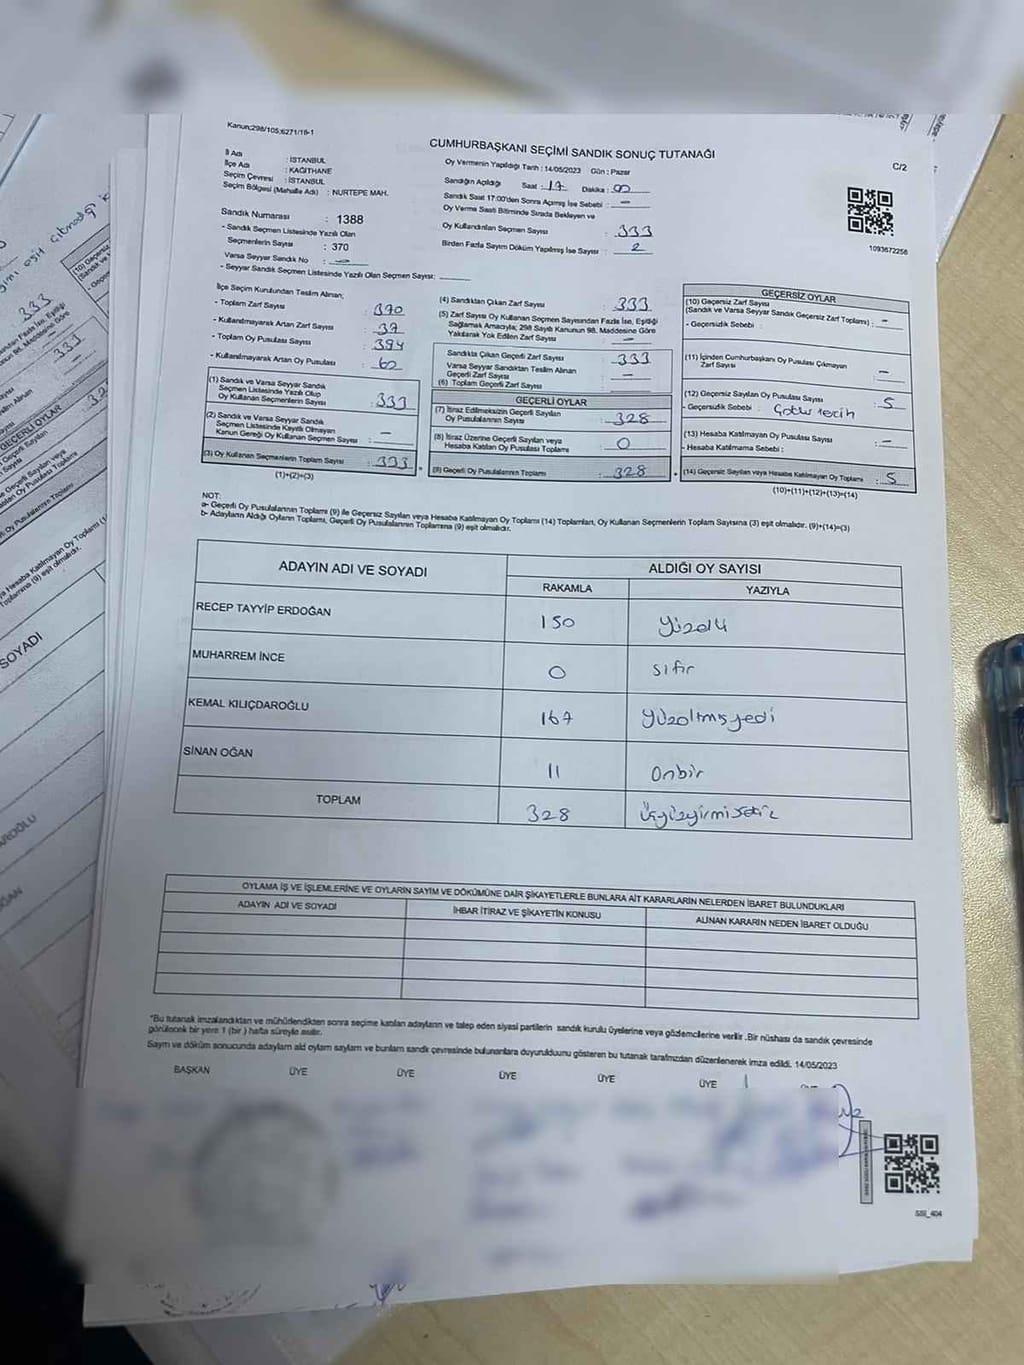 Kanun;298/105;6271/18-1
CUMHURBAŞKANI SEÇİMİ SANDIK SONUÇ TUTANAĞI
C/2
İl Adı : İSTANBUL
İlçe Adı : KAĞITHANE
Seçim Çevresi : İSTANBUL
Seçim Bölgesi (Mahalle Adı) : NURTEPE MAH.
Sandık Numarası : 1388
- Sandık Seçmen Listesinde Yazılı Olan
Seçmenlerin Sayısı : 370
Varsa Seyyar Sandık No : -
- Seyyar Sandık Seçmen Listesinde Yazılı Olan Seçmen Sayısı:
Oy Vermenin Yapıldığı Tarih : 14/05/2023 Gün : Pazar
Sandığın Açıldığı Saat : 17 Dakika : 00
Sandık Saat 17:00'den Sonra Açılmış İse Sebebi : -
Oy Verme Saati Bitiminde Sırada Bekleyen ve
Oy Kullandırılan Seçmen Sayısı : 333
Birden Fazla Sayım Döküm Yapılmış İse Sayısı : 2
1093672256
İlçe Seçim Kurulundan Teslim Alınan;
- Toplam Zarf Sayısı : 370
- Kullanılmayarak Artan Zarf Sayısı : 37
- Toplam Oy Pusulası Sayısı : 394
- Kullanılmayarak Artan Oy Pusulası : 60
(1) Sandık ve Varsa Seyyar Sandık
Seçmen Listesinde Yazılı Olup
Oy Kullanan Seçmenlerin Sayısı : 333
(2) Sandık ve Varsa Seyyar Sandık
Seçmen Listesinde Kayıtlı Olmayan
Kanun Gereği Oy Kullanan Seçmen Sayısı : -
(3) Oy Kullanan Seçmenlerin Toplam Sayısı : 333
(1)+(2)=(3)
(4) Sandıktan Çıkan Zarf Sayısı : 333
(5) Zarf Sayısı Oy Kullanan Seçmen Sayısından Fazla İse, Eşitliği
Sağlamak Amacıyla; 298 Sayılı Kanunun 98. Maddesine Göre
Yakılarak Yok Edilen Zarf Sayısı : -
Sandıkta Çıkan Geçerli Zarf Sayısı : 333
Varsa Seyyar Sandıktan Teslim Alınan
Geçerli Zarf Sayısı : -
(6) Toplam Geçerli Zarf Sayısı :
GEÇERLİ OYLAR
(7) İtiraz Edilmeksizin Geçerli Sayılan
Oy Pusulalarının Sayısı : 328
(8) İtiraz Üzerine Geçerli Sayılan veya
Hesaba Katılan Oy Pusulası Toplamı : 0
(9) Geçerli Oy Pusulalarının Toplamı : 328
GEÇERSİZ OYLAR
(10) Geçersiz Zarf Sayısı
(Sandık ve Varsa Seyyar Sandık Geçersiz Zarf Toplamı) : -
- Geçersizlik Sebebi :
(11) İçinden Cumhurbaşkanı Oy Pusulası Çıkmayan
Zarf Sayısı : -
(12) Geçersiz Sayılan Oy Pusulası Sayısı : 5
- Geçersizlik Sebebi : Çoklu tercih
(13) Hesaba Katılmayan Oy Pusulası Sayısı : -
- Hesaba Katılmama Sebebi :
(14) Geçersiz Sayılan veya Hesaba Katılmayan Oy Toplamı : 5
(10)+(11)+(12)+(13)=(14)
NOT:
a- Geçerli Oy Pusulasının Toplamı (9) ile Geçersiz Sayılan veya Hesaba Katılmayan Oy Toplamı (14) Toplamları, Oy Kullanan Seçmenlerin Toplam Sayısına (3) eşit olmalıdır. (9)+(14)=(3)
b- Adayların Aldığı Oyların Toplamı, Geçerli Oy Pusulalarının Toplamına (9) eşit olmalıdır.
ADAYIN ADI VE SOYADI
ALDIĞI OY SAYISI
RAKAMLA YAZIYLA
RECEP TAYYİP ERDOĞAN 150 yüzelli
MUHARREM İNCE 0 sıfır
KEMAL KILIÇDAROĞLU 167 yüzaltmışyedi
SİNAN OĞAN 11 onbir
TOPLAM 328 üçyüzyirmisekiz
OYLAMA İŞ VE İŞLEMLERİNE VE OYLARIN SAYIM VE DÖKÜMÜNE DAİR ŞİKAYETLERLE BUNLARA AİT KARARLARIN NELERDEN İBARET BULUNDUKLARI
ADAYIN ADI VE SOYADI İHBAR İTİRAZ VE ŞİKAYETİN KONUSU ALINAN KARARIN NEDEN İBARET OLDUĞU
*Bu tutanak imzalandıktan ve mühürlendikten sonra seçime katılan adayların ve talep eden siyasi partilerin sandık kurulu üyelerine veya gözlemcilerine verilir. Bir nüshası da sandık çevresinde
görülecek bir yere 1 (bir) hafta süreyle asılır.
Sayım ve döküm sonucunda adayların aldı oyların sayıları ve bunların sandık çevresinde bulunanlara duyurulduunu gösteren bu tutanak tarafımızdan düzenlenerek imza edildi. 14/05/2023
BAŞKAN ÜYE ÜYE ÜYE ÜYE ÜYE
SSI_404